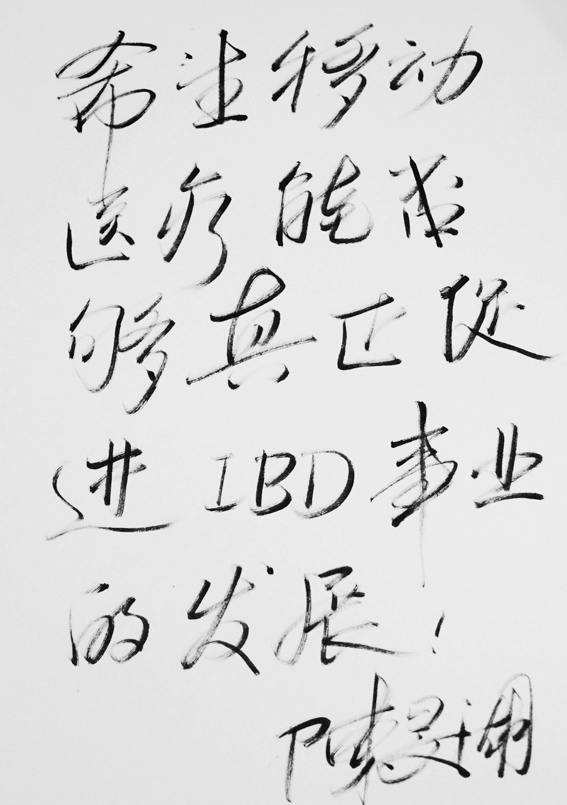 希望移动
医疗能否
够真正促
进 IBD 事业
的发展！
陈旻湖